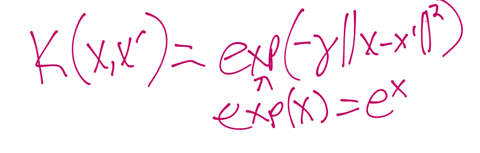 K(x,x')=exp(-γ||x-x'||²)
exp(x)=eˣ